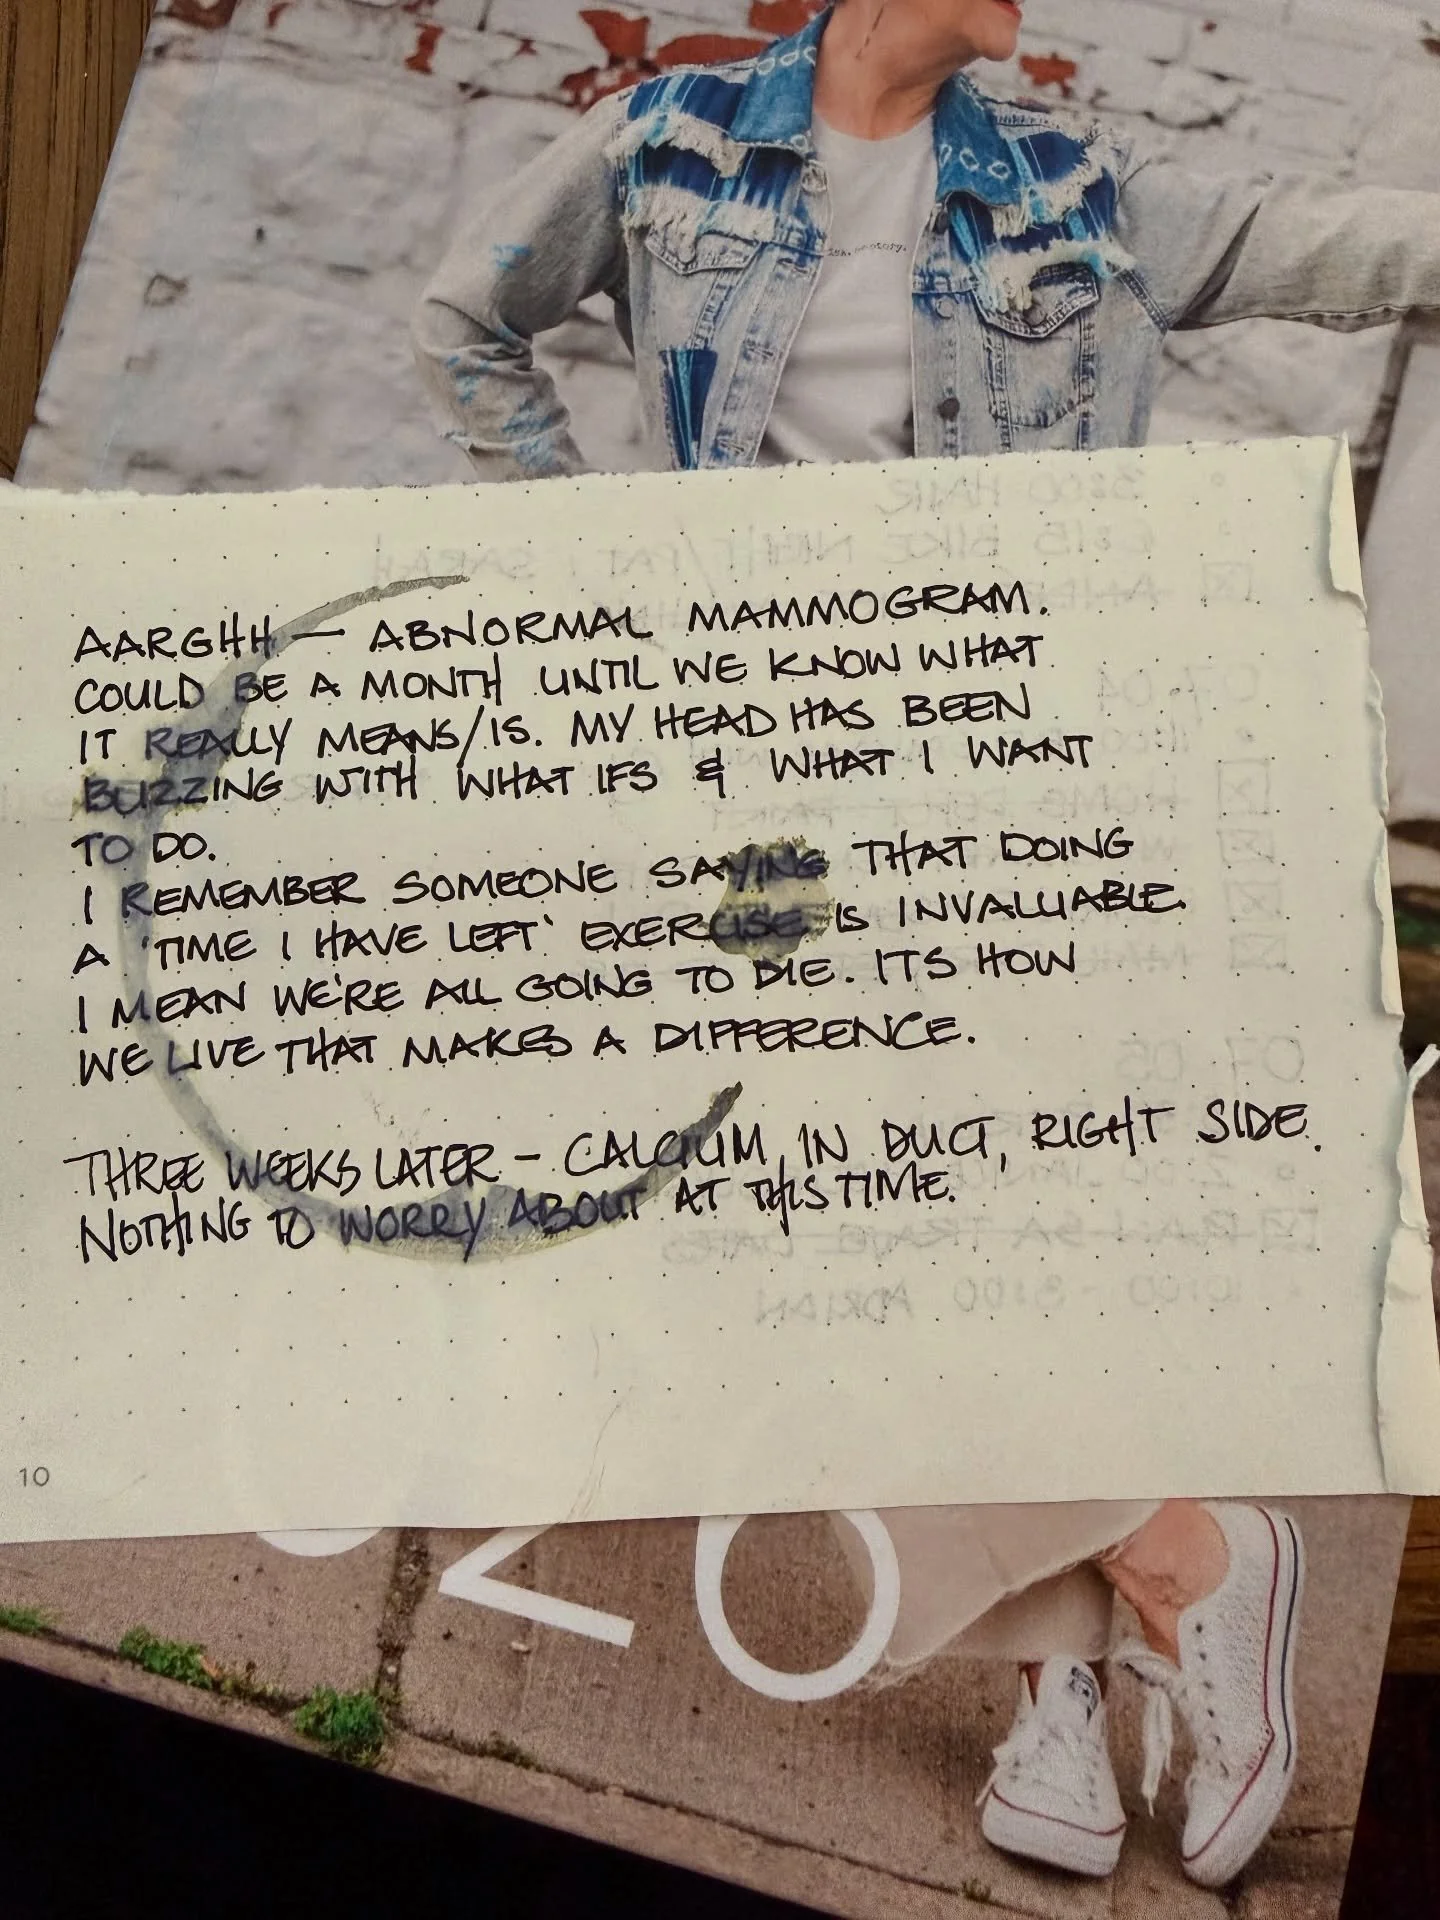 AARGHH — ABNORMAL MAMMOGRAM.
COULD BE A MONTH UNTIL WE KNOW WHAT
IT REALLY MEANS/IS. MY HEAD HAS BEEN
BUZZING WITH WHAT IFS & WHAT I WANT
TO DO.
I REMEMBER SOMEONE SAYING THAT DOING
A 'TIME I HAVE LEFT' EXERCISE IS INVALUABLE.
I MEAN WE'RE ALL GOING TO DIE. ITS HOW
WE LIVE THAT MAKES A DIFFERENCE.
THREE WEEKS LATER – CALCIUM, IN DUCT, RIGHT SIDE.
NOTHING TO WORRY ABOUT AT THIS TIME.
10
20